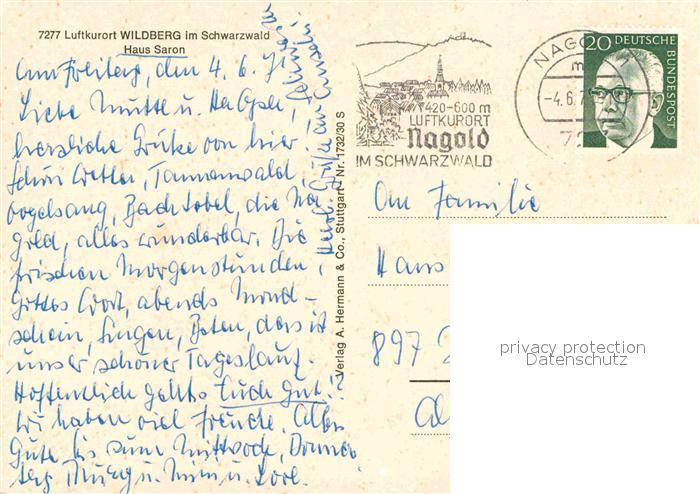 7277 Luftkurort WILDBERG im Schwarzwald
Haus Saron
Am Freitag, den 4. 6. 71
Liebe Mutti u.
herzliche Grüße von hier!
Schön Wetter, Tannenwald,
Vogelsang, Bachtobel, die Na-
gold, alles wunderbar. Die
frischen Morgenstunden,
Gottes Wort, abends Mond-
schein, Singen, Beten, das ist
unser schöner Tageslauf.
Hoffentlich gehts Euch gut!?
Wir haben viel Freude. Alles
Gute bis zum Mittwoch, Donners
tag u. u.
Herzl. Grüße an
Verlag A. Hermann & Co., Stuttgart - Nr. 1732/30 S
420-600 m
LUFTKURORT
Nagold
IM SCHWARZWALD
NAGOLD
-4.6.7
20 DEUTSCHE BUNDESPOST
An Familie
Hans
897
privacy protection
Datenschutz